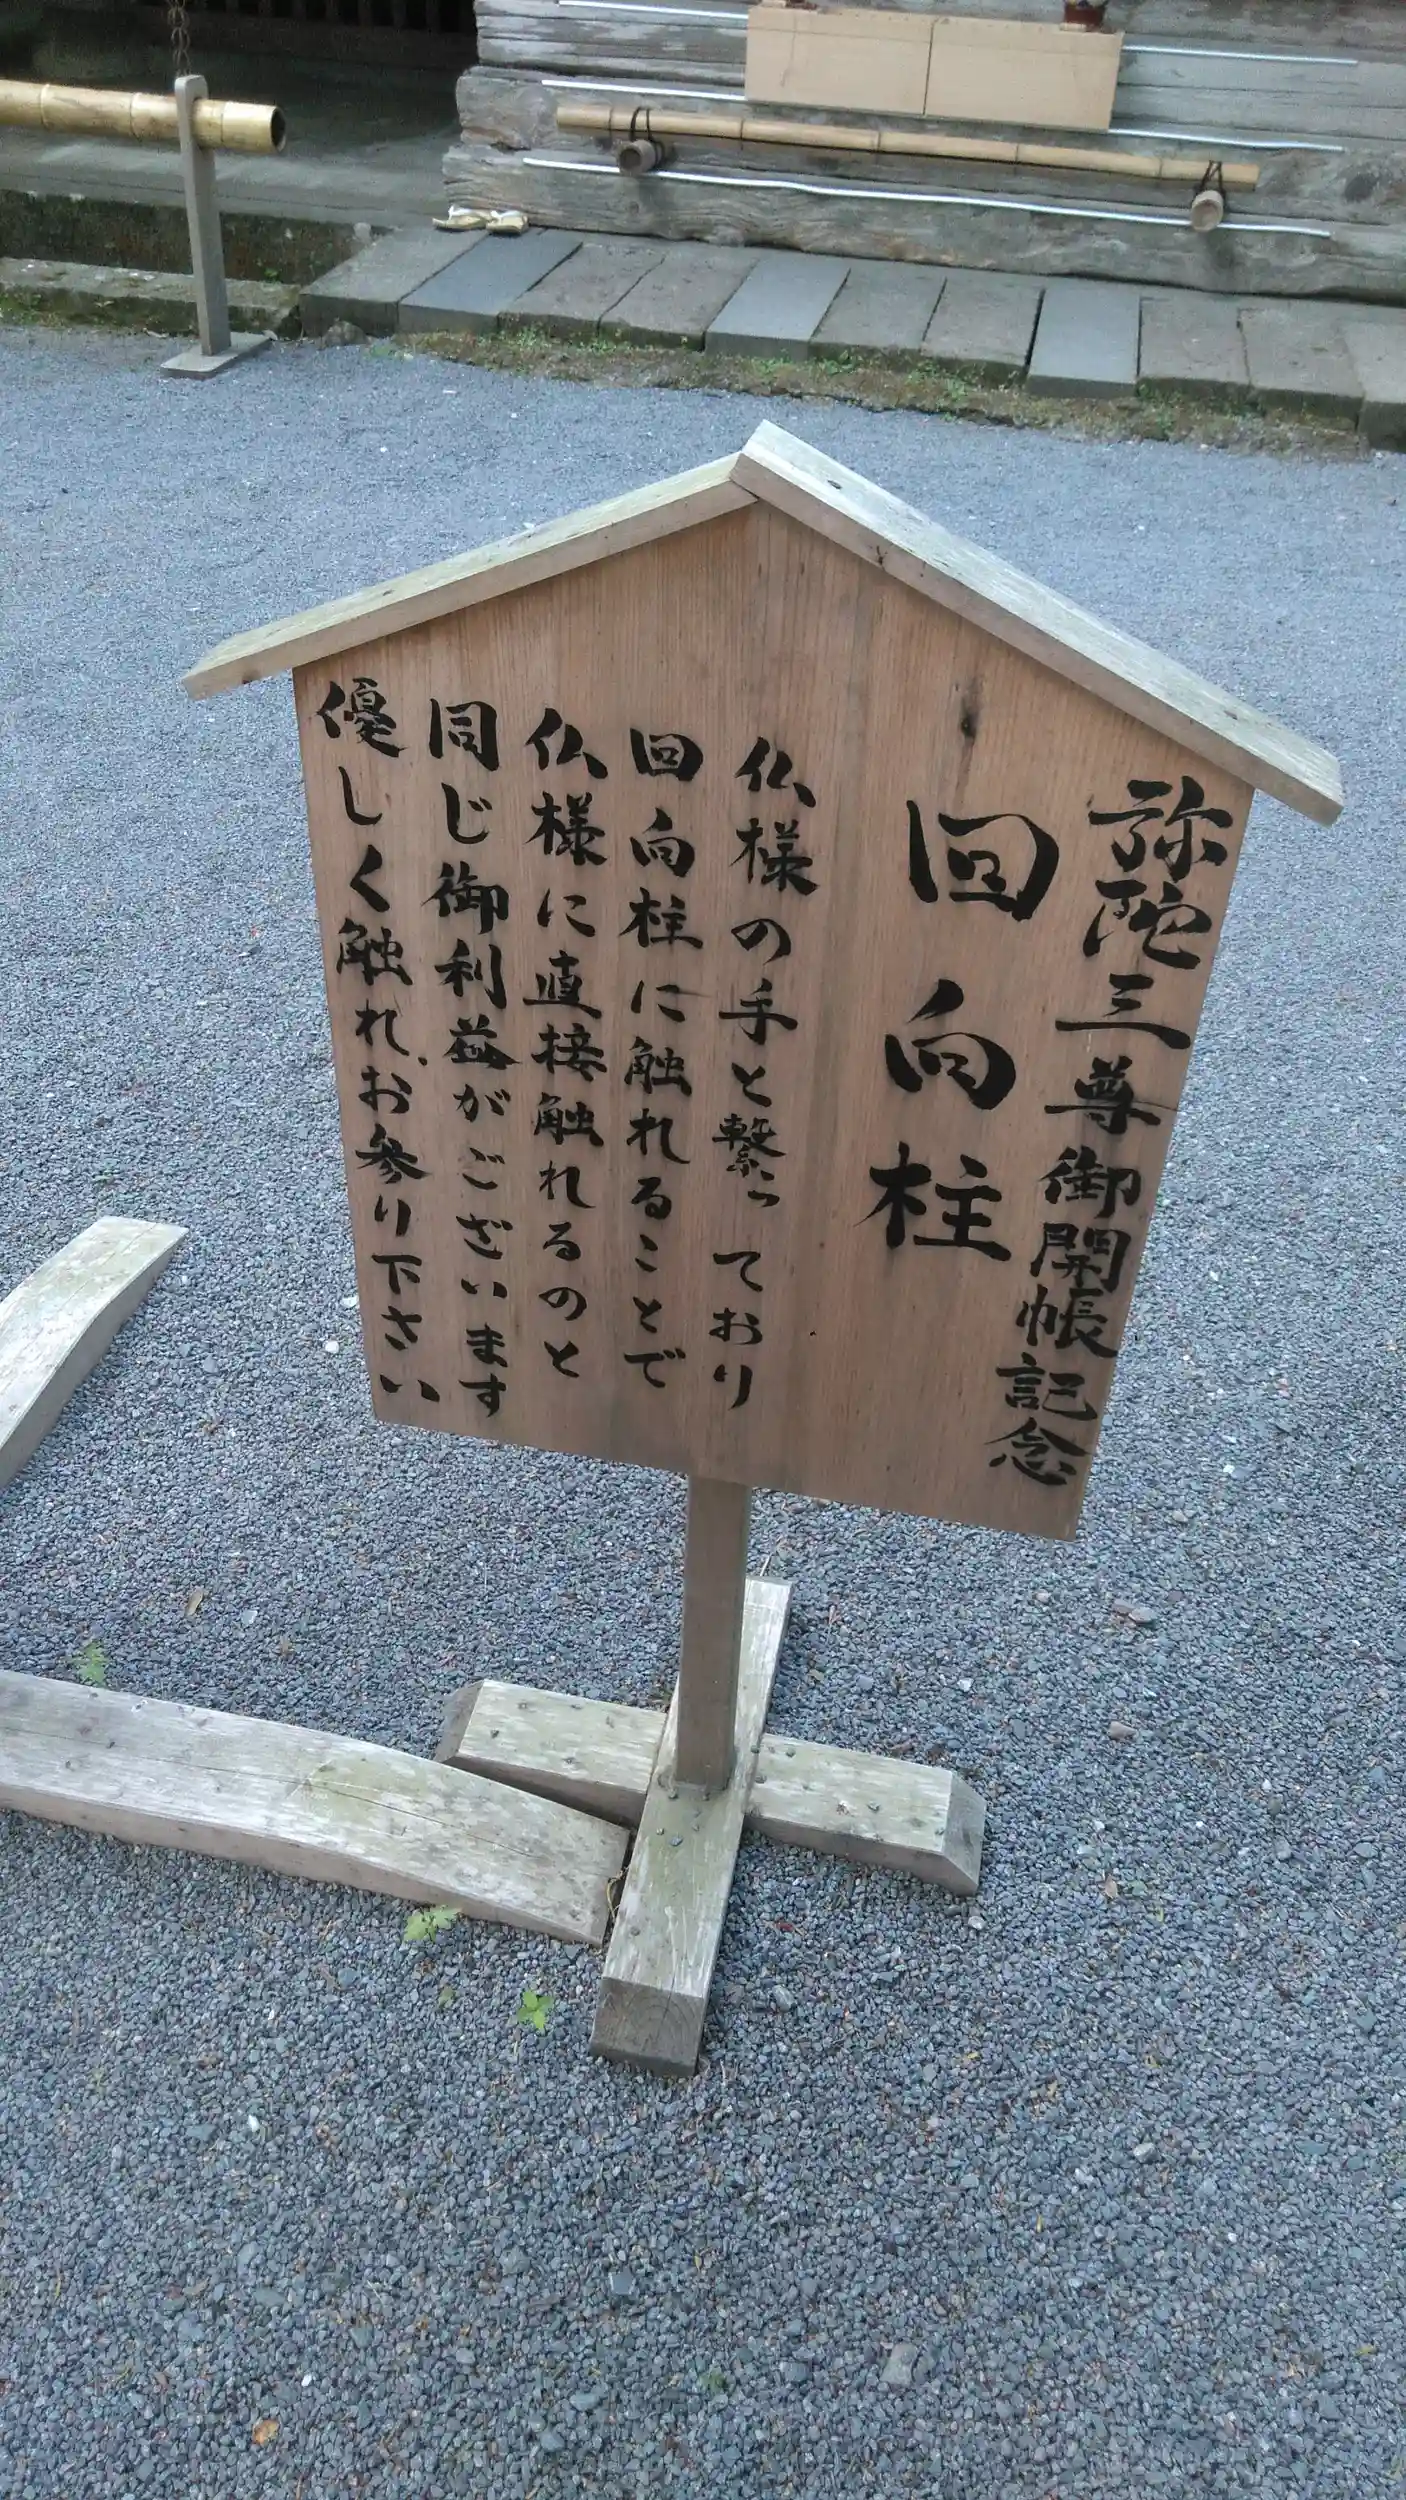 弥陀三尊御開帳記念
回向柱
仏様の手と繋っており
回向柱に触れることで
仏様に直接触れるのと
同じ御利益がございます
優しく触れ、お参り下さい